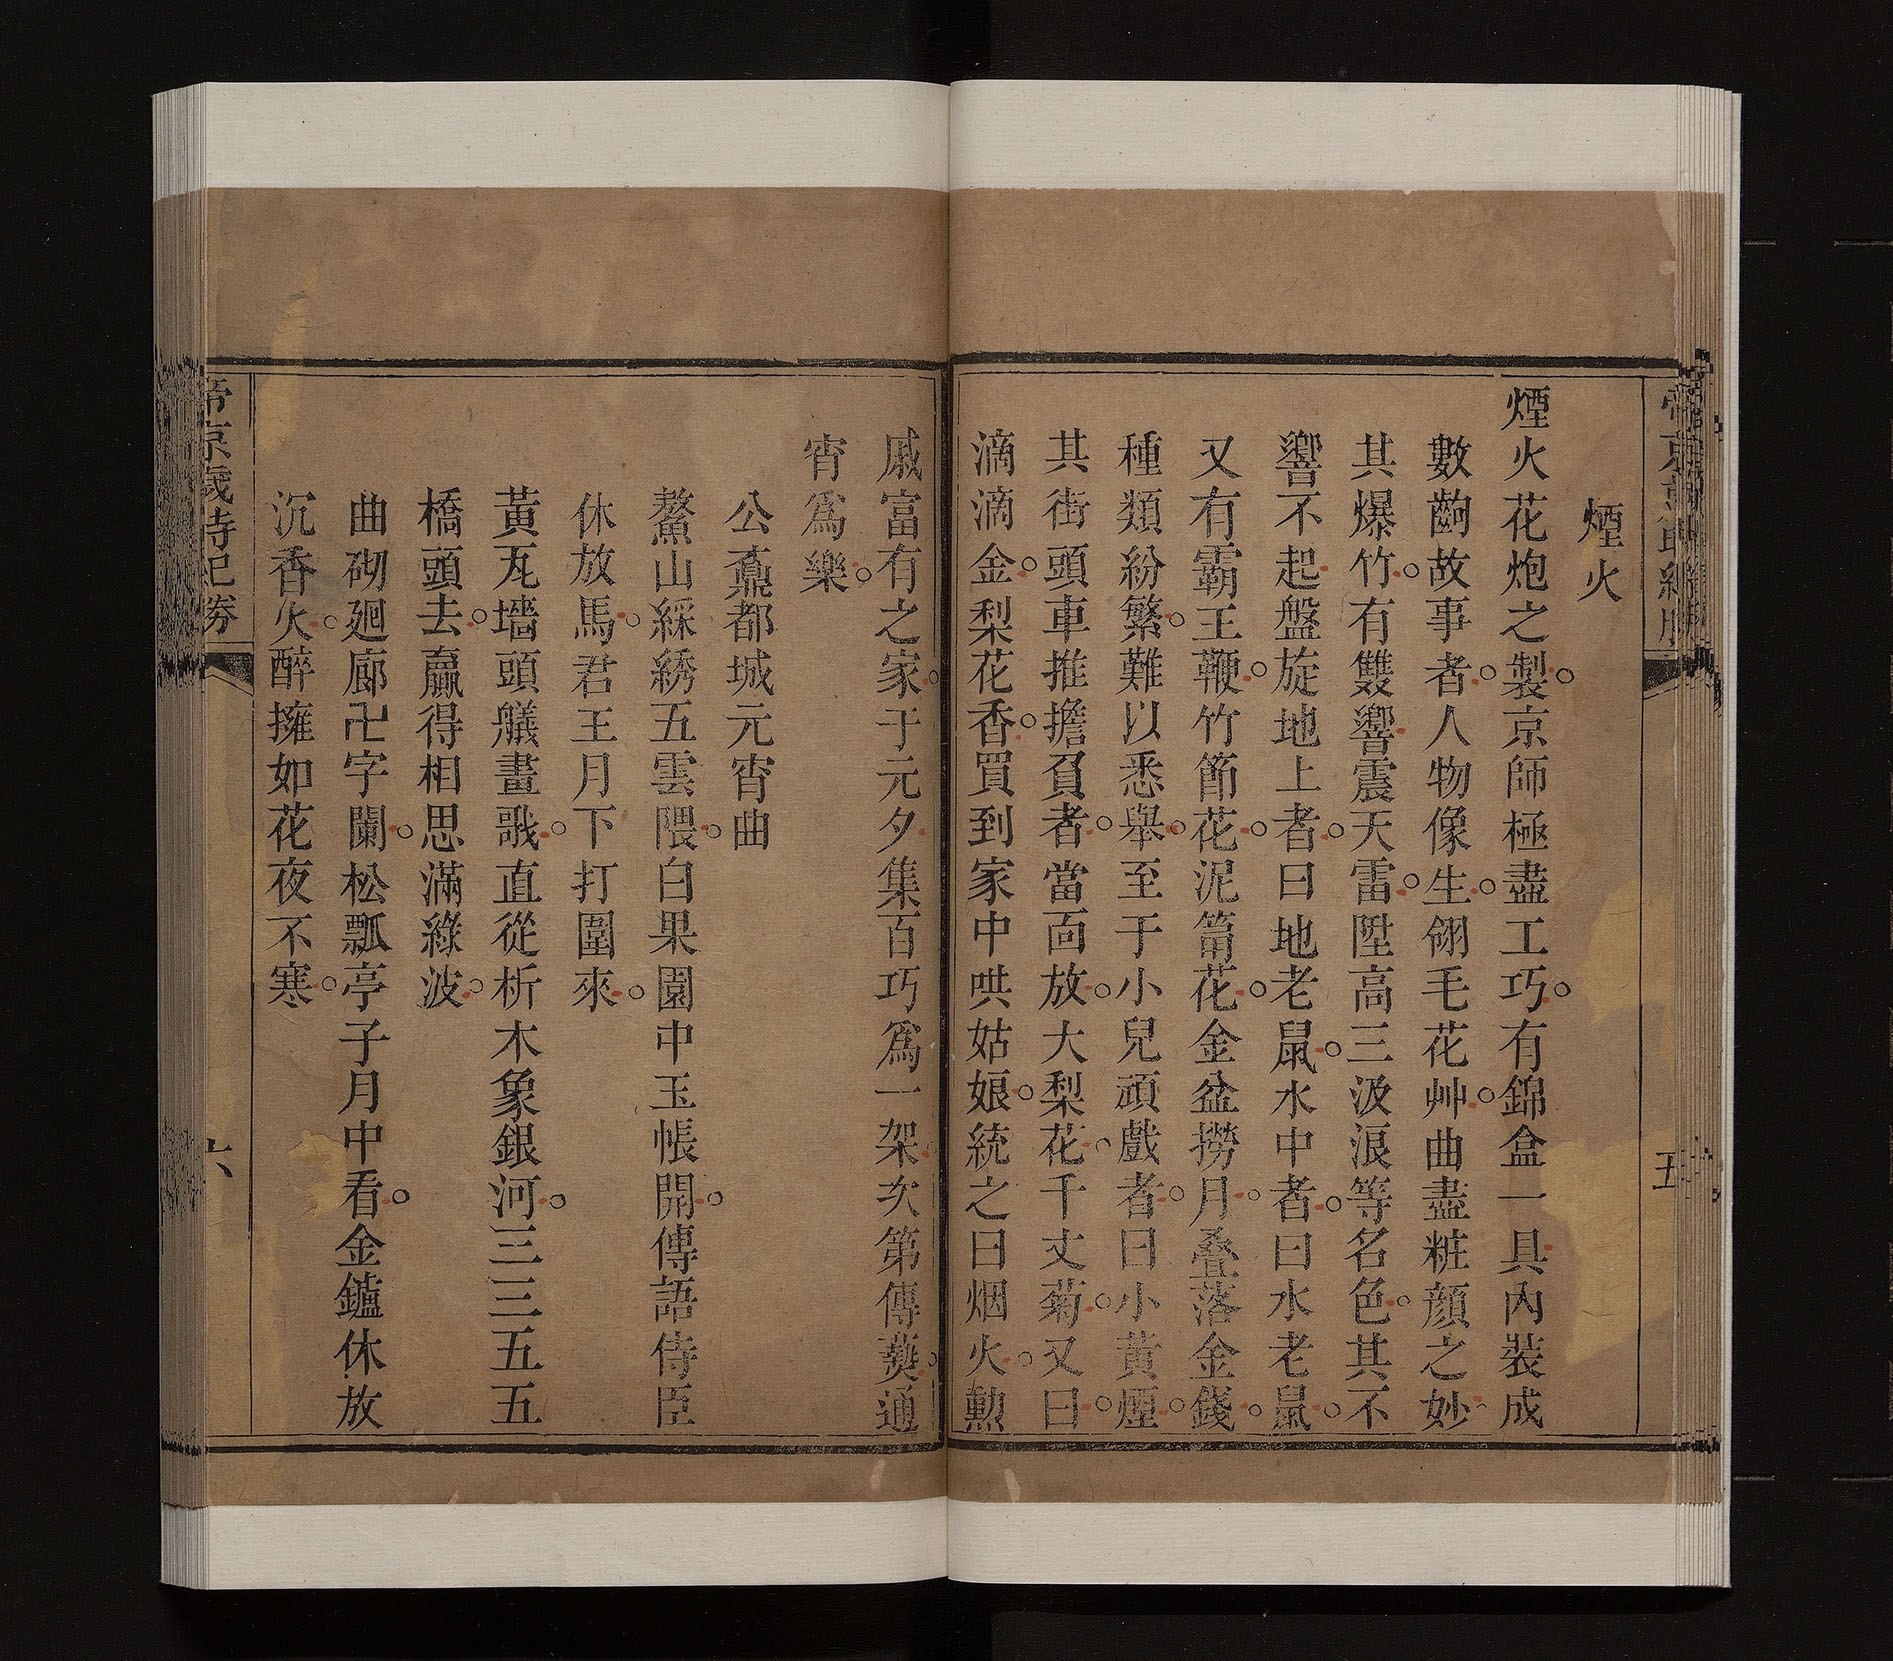 煙火
煙火花炮之製京師極盡工巧有錦盒一具內裝成
數齣故事者人物像生翎毛花艸曲盡粧顔之妙
其爆竹有雙響震天雷陞高三汲浪等名色其不
響不起盤旋地上者曰地老鼠水中者曰水老鼠
又有霸王鞭竹節花泥筩花金盆撈月叠落金錢
種類紛繁難以悉舉至于小兒頑戲者曰小黃煙
其街頭車推擔負者當面放大梨花千丈菊又曰
滴滴金梨花香買到家中哄姑娘統之曰烟火勲
戚富有之家于元夕集百巧爲一架次第傳爇通
宵爲樂
公鼐都城元宵曲
鰲山綵綉五雲隈白果園中玉帳開傳語侍臣
休放馬君王月下打圍來
黃瓦墻頭艤畫㦽直從析木象銀河三三五五
橋頭去贏得相思滿綠波
曲砌廻廊卍字闌松瓢亭子月中看金鑪休放
沉香火醉擁如花夜不寒
帝京歲時紀勝
六
五